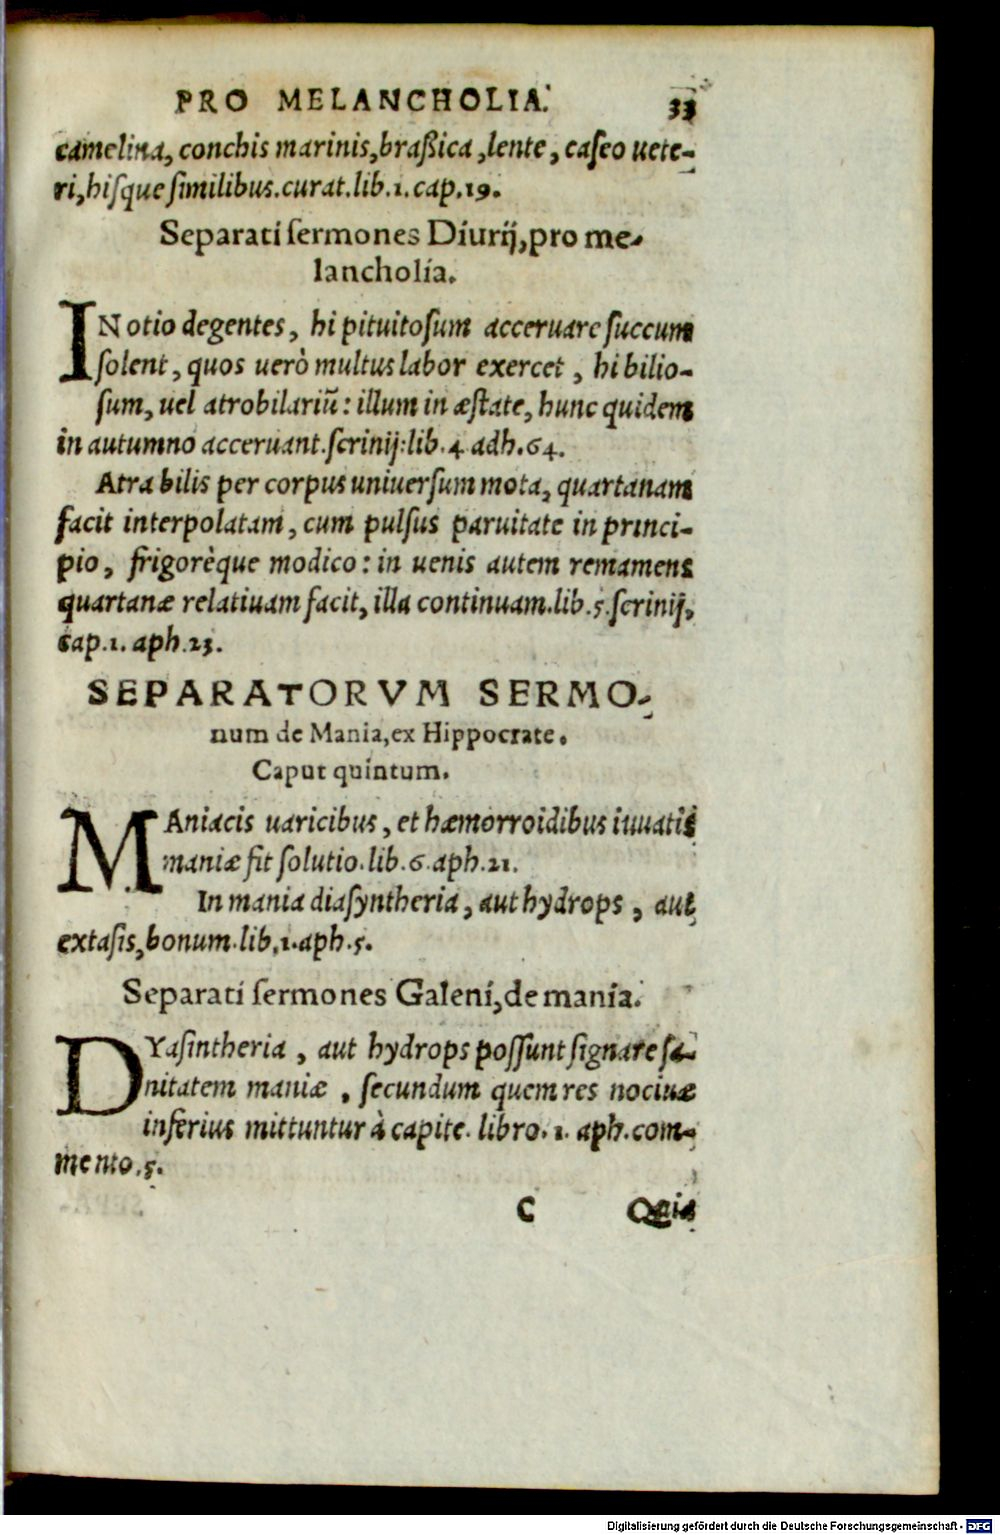 PRO MELANCHOLIA. 33
camelina, conchis marinis, braßica, lente, caſeo uete-
ri, hiſque ſimilibus. curat. lib. 1. cap. 19.
Separati ſermones Diurij, pro me-
lancholia.
IN otio degentes, hi pituitoſum acceruare ſuccum
ſolent, quos uerò multus labor exercet, hi bilio-
ſum, uel atrobilariũ: illum in æſtate, hunc quidem
in autumno acceruant. ſcrinij: lib. 4 adh. 64.
Atra bilis per corpus uniuerſum mota, quartanam
facit interpolatam, cum pulſus paruitate in princi-
pio, frigorèque modico: in uenis autem remamens
quartanæ relatiuam facit, illa continuam. lib. 5. ſcrinij,
cap. 1. aph. 23.
SEPARATORVM SERMO-
num de Mania, ex Hippocrate.
Caput quintum.
MAniacis uaricibus, et hæmorroidibus iuuatis
maniæ fit ſolutio. lib. 6. aph. 21.
In mania diaſyntheria, aut hydrops, aut
extaſis, bonum. lib. 1. aph. 5.
Separati ſermones Galeni, de mania.
DYaſintheria, aut hydrops poſſunt ſignare ſa-
nitatem maniæ, ſecundum quem res nociuæ
inferius mittuntur à capite. libro. 1. aph. com-
mento. 5.
C Quis
Digitalisierung gefördert durch die Deutsche Forschungsgemeinschaft - DFG